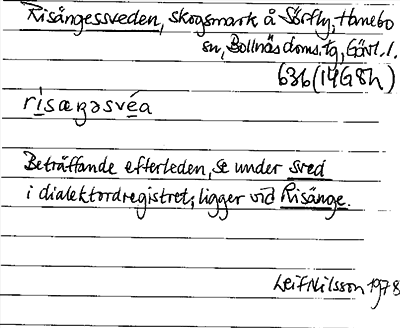 Risängessveden, skogsmark å Sörfly, Hanebo
sn, Bollnäs doms. tg, Gävl. l.
636 (14G 8h)
risæŋəsvéa
Beträffande efterleden, se under sved
i dialektordregistret; ligger vid Risänge.
Leif Nilsson 1978